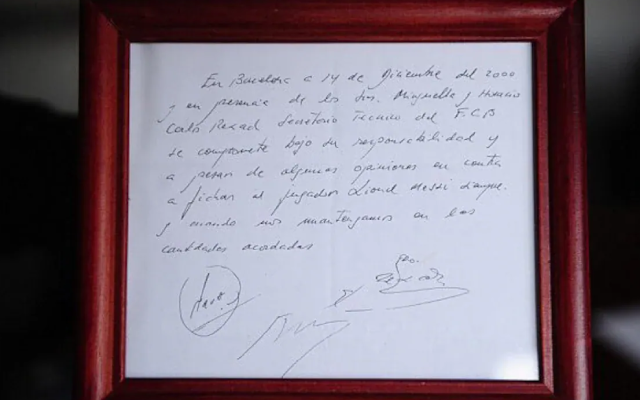 En Barcelona a 14 de Diciembre del 2000
y en presencia de los Srs. Minguella y Horacio
Carlo Rexach Secretario Técnico del F.C.B
se compromete bajo su responsabilidad y
a pesar de algunas opiniones en contra
a fichar al jugador Lionel Messi siempre
y cuando nos mantengamos en las
cantidades acordadas